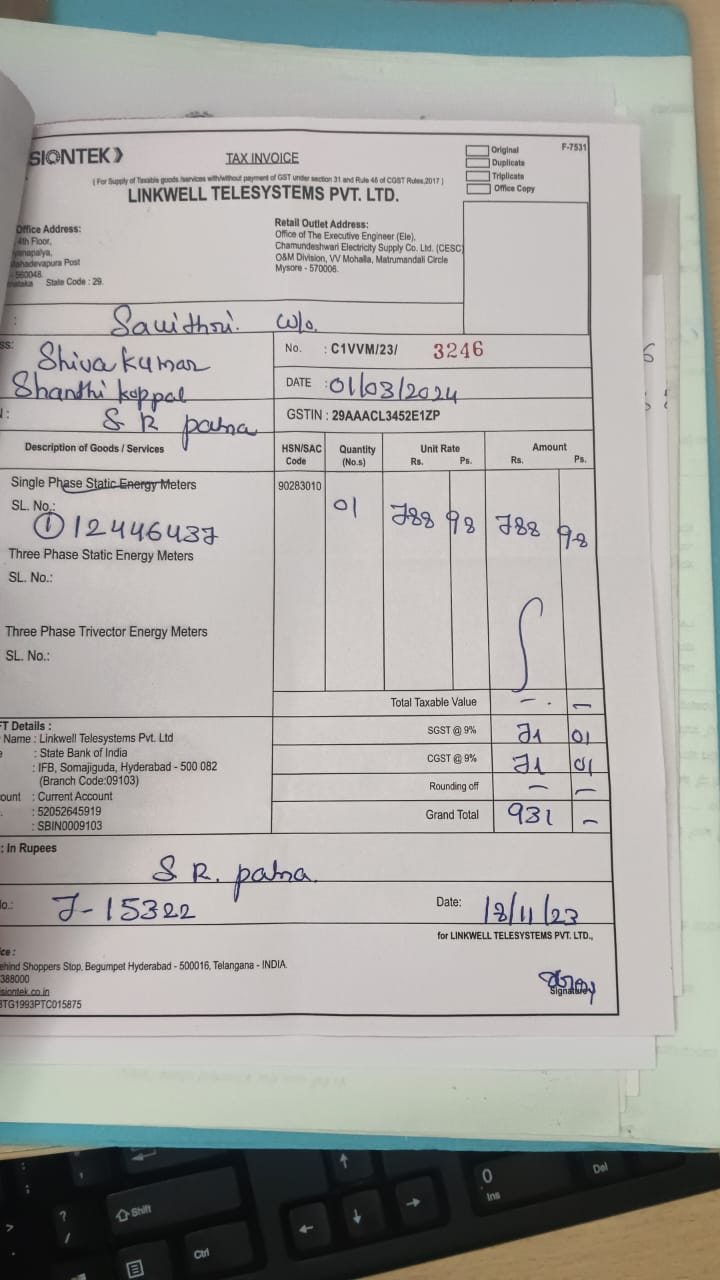 SIONTEK
TAX INVOICE
Original
Duplicate
Triplicate
Office Copy
F-7531
( For Supply of Taxable goods /services with/without payment of GST under section 31 and Rule 46 of CGST Rules,2017 )
LINKWELL TELESYSTEMS PVT. LTD.
Office Address:
4th Floor,
Mahadevapura Post
- 560048.
State Code : 29.
Retail Outlet Address:
Office of The Executive Engineer (Ele),
Chamundeshwari Electricity Supply Co. Ltd. (CESC)
O&M Division, VV Mohalla, Matrumandali Circle
Mysore - 570006.
: Savithri. W/o.
Shivakumar
Shanthi koppal
S R patna
No. : C1VVM/23/ 3246
DATE : 01/03/2024
GSTIN : 29AAACL3452E1ZP
Description of Goods / Services HSN/SAC Code Quantity (No.s) Unit Rate Rs. Ps. Amount Rs. Ps.
Single Phase Static Energy Meters 90283010
SL. No.: 01 788 98 788 98
① 12446437
Three Phase Static Energy Meters
SL. No.:
Three Phase Trivector Energy Meters
SL. No.:
Total Taxable Value - . -
FT Details :
Name : Linkwell Telesystems Pvt. Ltd
: State Bank of India
: IFB, Somajiguda, Hyderabad - 500 082
(Branch Code:09103)
ount : Current Account
: 52052645919
: SBIN0009103
SGST @ 9% 71 01
CGST @ 9% 71 01
Rounding off - -
Grand Total 931 -
: In Rupees
S R. patna.
No.: J-15322
Date: 18/11/23
for LINKWELL TELESYSTEMS PVT. LTD.,
ice :
ehind Shoppers Stop, Begumpet Hyderabad - 500016, Telangana - INDIA.
388000
siontek.co.in
TG1993PTC015875
Signatory
Shift
Ctrl
0
Ins
Del
?
/